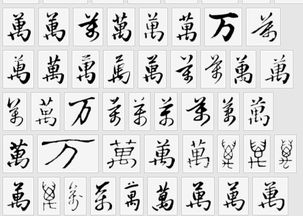 萬 萬 萬 萬 萬 萬 万 萬
萬 萬 萬 萬 萬 萬 萬 萬 萬
萬 萬 万 萬 萬 萬 萬 萬 萬
萬 万 萬 萬 萬 萬 萬 萬
萬 萬 萬 萬 萬 萬 萬 萬 萬